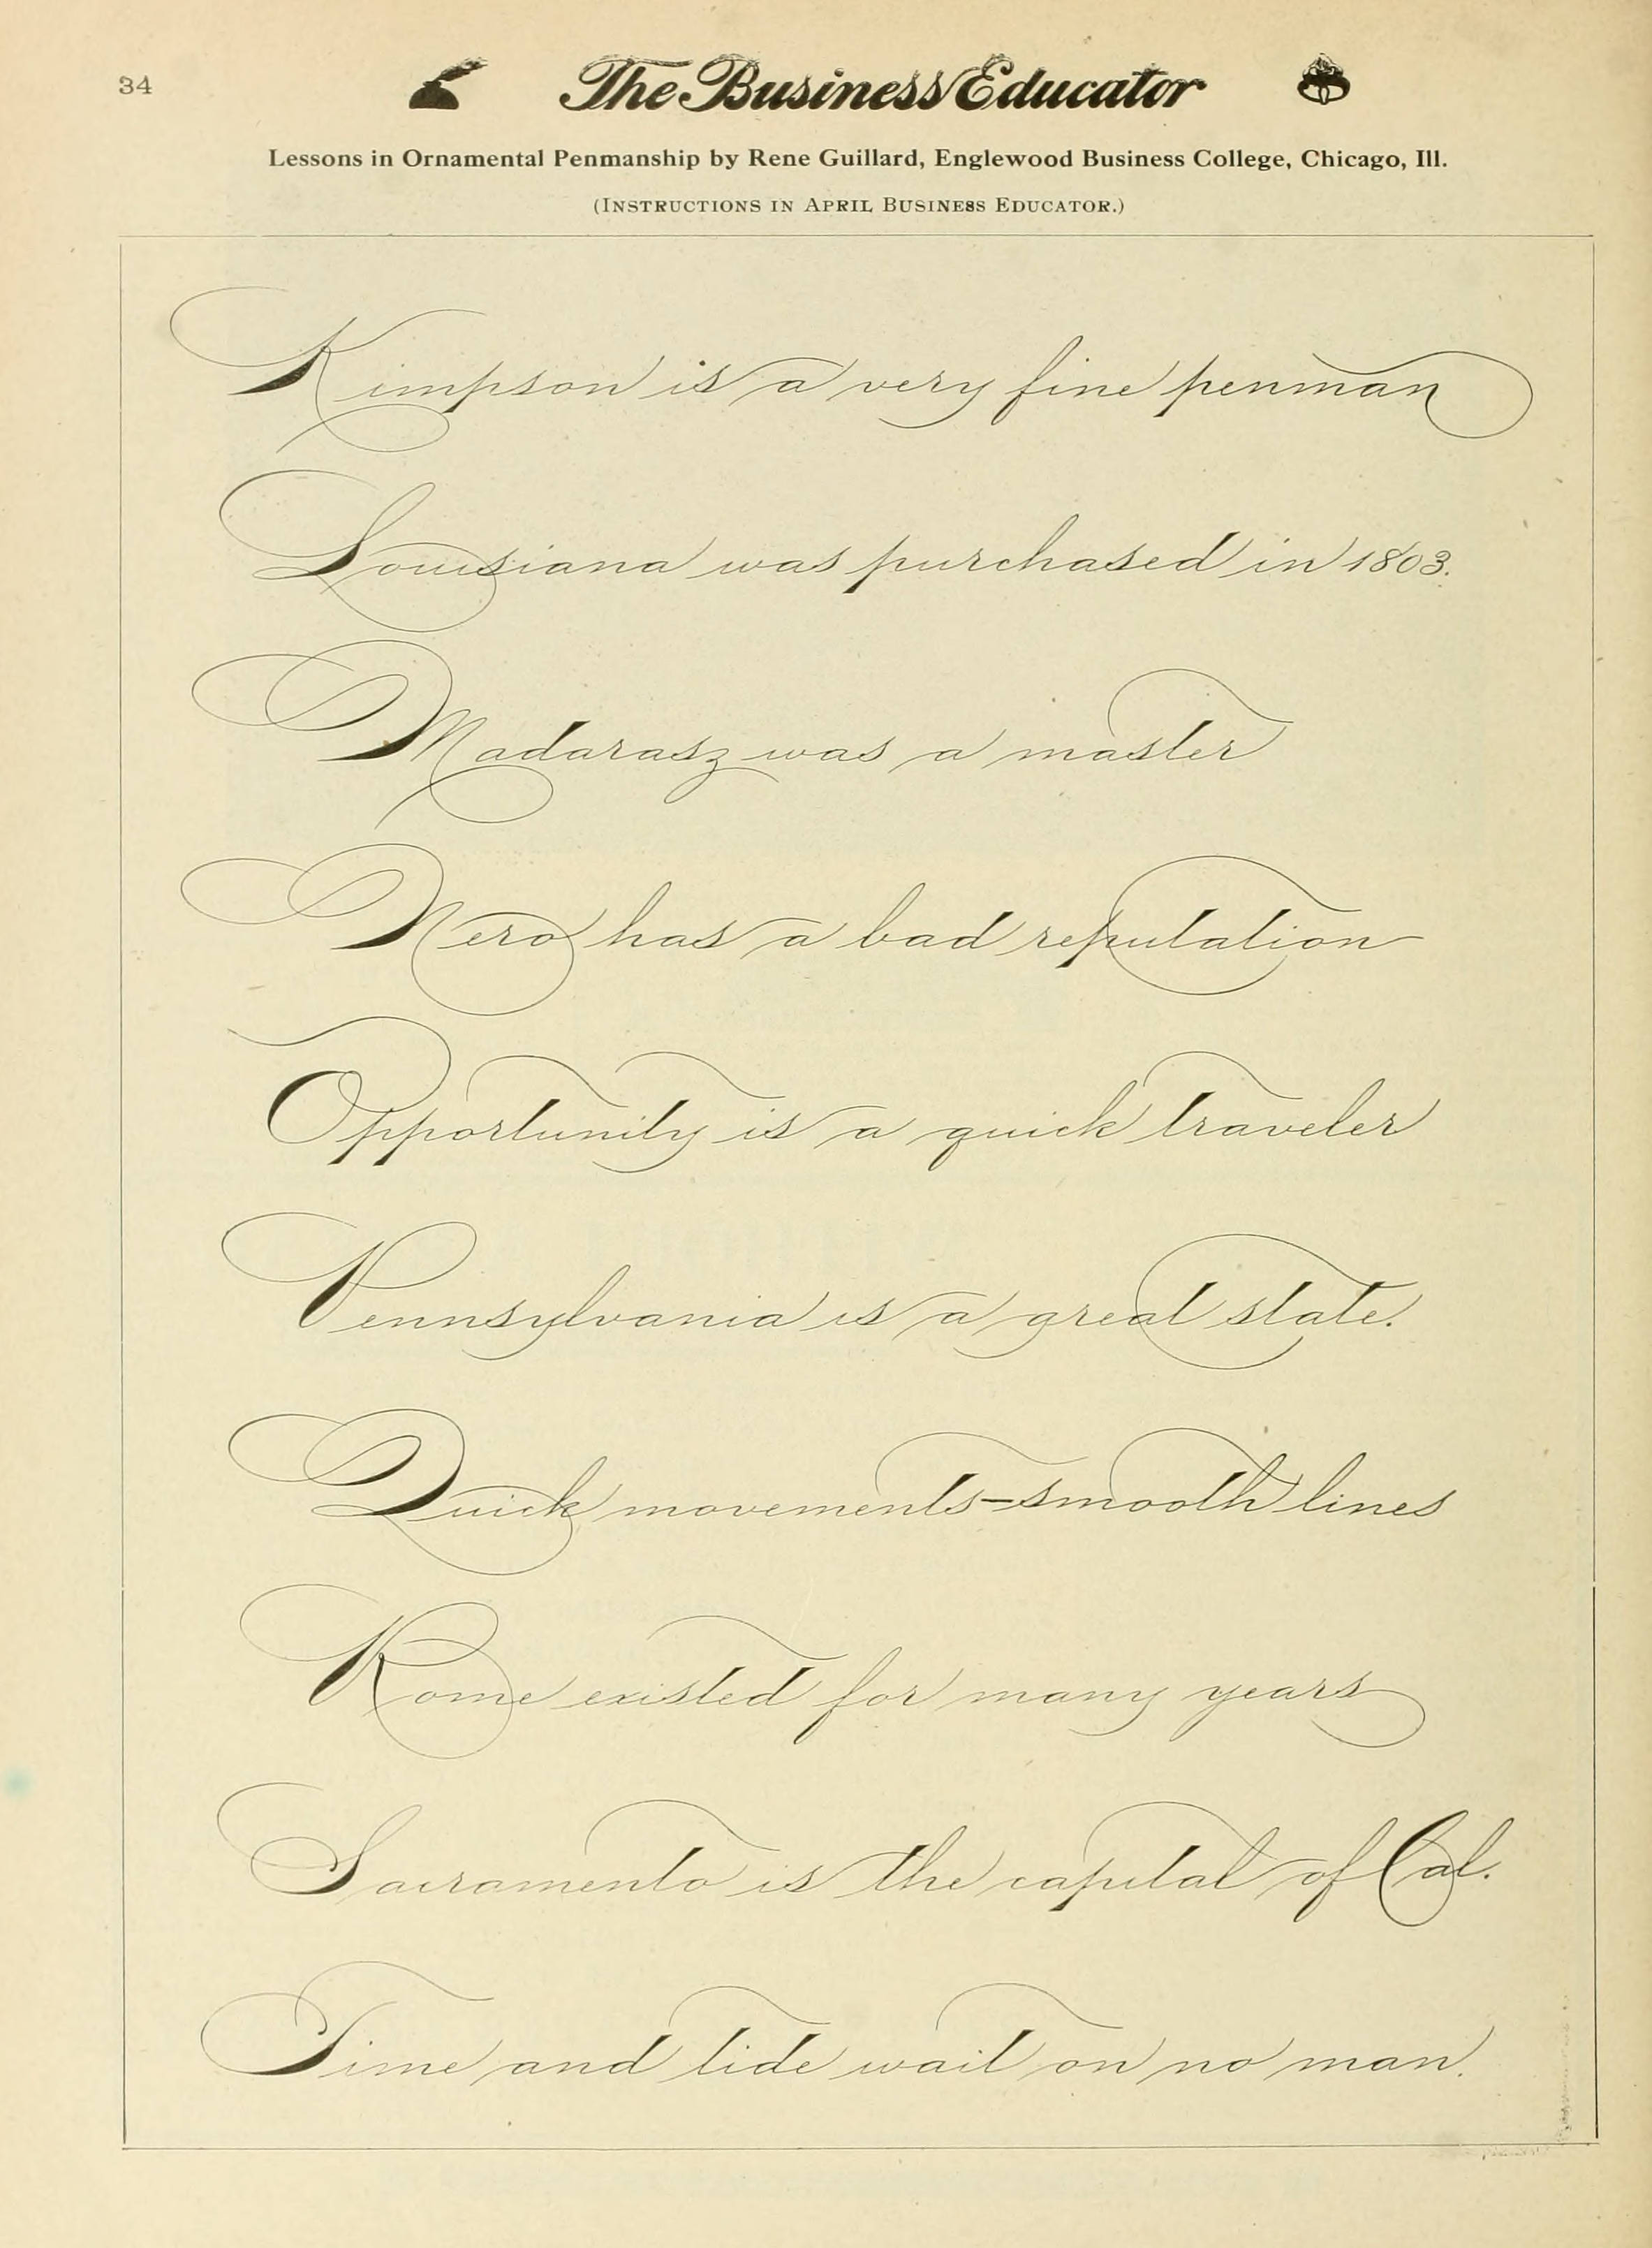 34
The Business Educator
Lessons in Ornamental Penmanship by Rene Guillard, Englewood Business College, Chicago, Ill.
(INSTRUCTIONS IN APRIL BUSINESS EDUCATOR.)
Kimpson is a very fine penman
Louisiana was purchased in 1803.
Madarasz was a master
Nero has a bad reputation
Opportunity is a quick traveler
Pennsylvania is a great state.
Quick movements-smooth lines
Rome existed for many years
Sacramento is the capital of Cal.
Time and tide wait on no man.